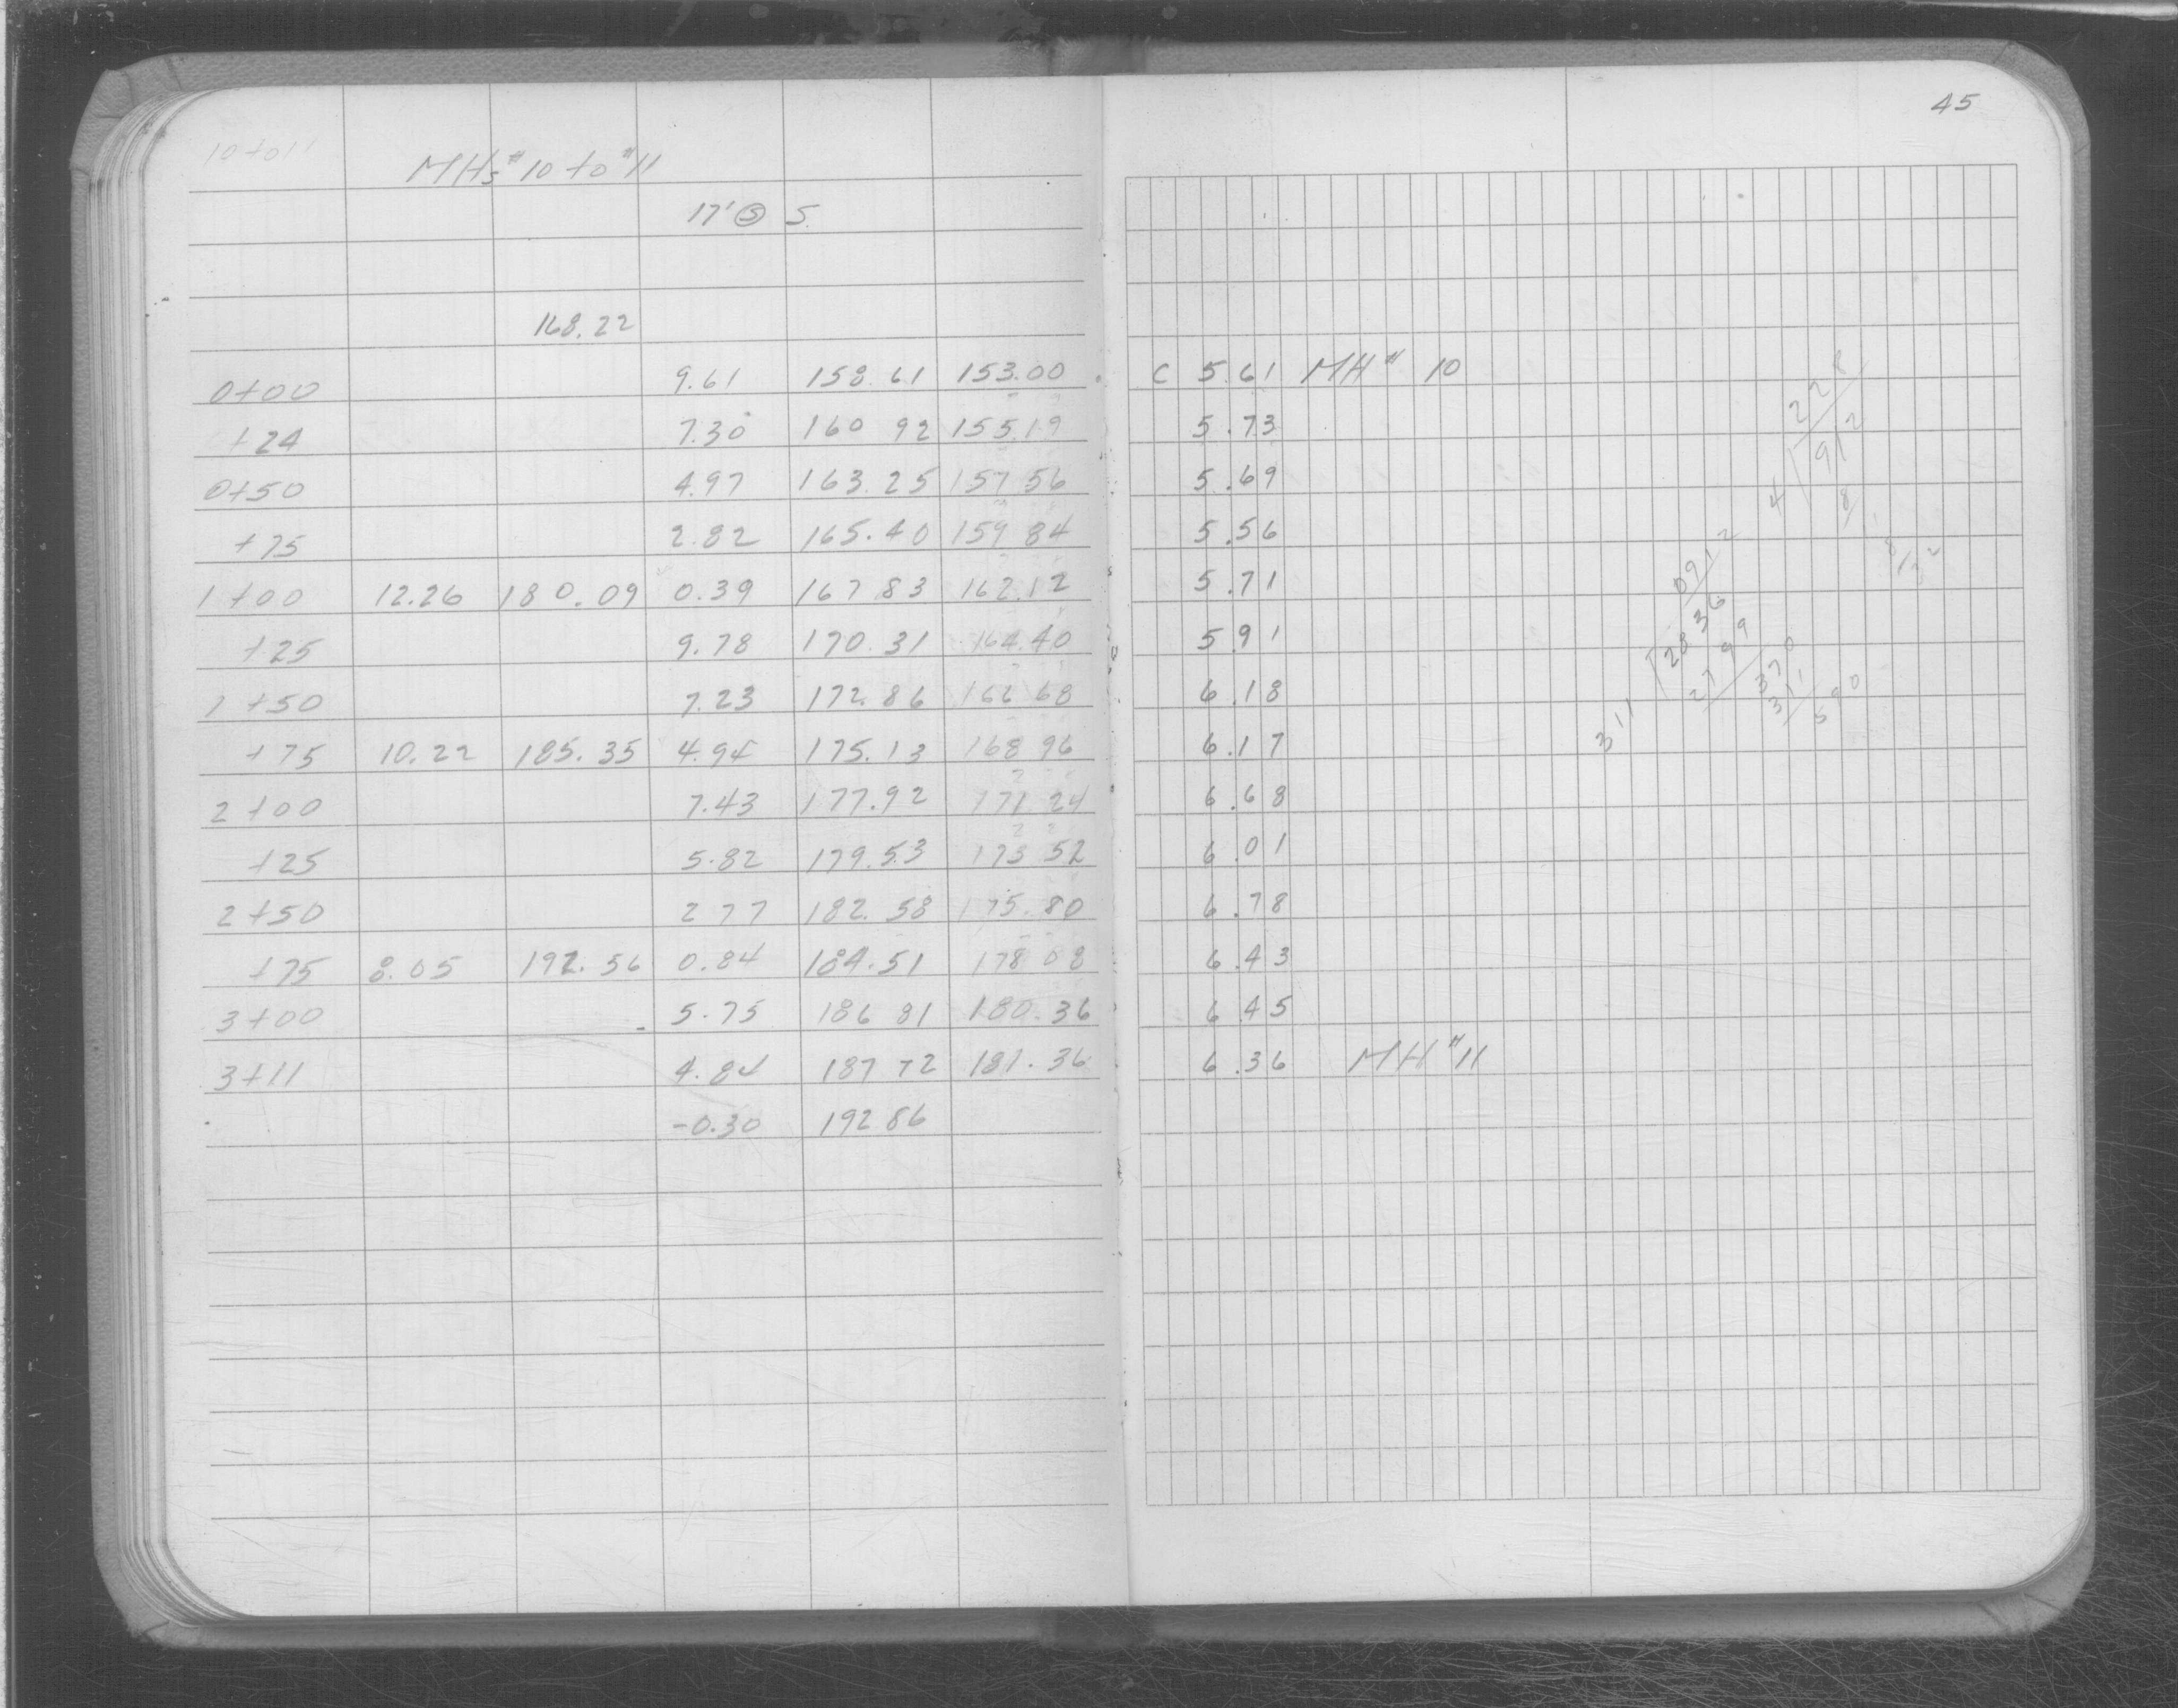 45
10 to 11
MHs #10 to #11
17' Ⓢ S.
168.22
0+00 9.61 158.61 153.00 C 5.61 MH # 10
+24 7.30 160 92 155.19 5.73
0+50 4.97 163.25 157 56 5.69
+75 2.82 165.40 159 84 5.56
1+00 12.26 180.09 0.39 167.83 162.12 5.71
+25 9.78 170.31 164.40 5.91
1+50 7.23 172.86 166 68 6.18
+75 10.22 185.35 4.94 175.13 168 96 6.17
2+00 7.43 177.92 171 24 6.68
+25 5.82 179.53 173 52 6.01
2+50 2 77 182.58 175.80 6.78
+75 8.05 192.56 0.84 184.51 178 08 6.43
3+00 5.75 186 81 180.36 6.45
3+11 4.84 187 72 181.36 6.36 MH #11
-0.30 192 86
4 912
8
0912
311 28 36
27 99
370
311
590